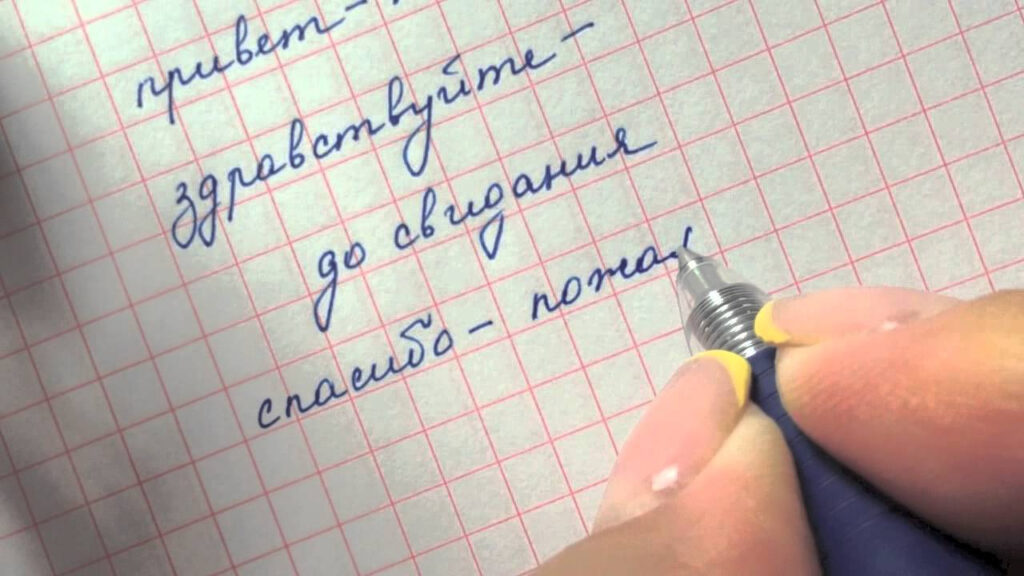 привет-
здравствуйте-
до свидания
спасибо- пожа